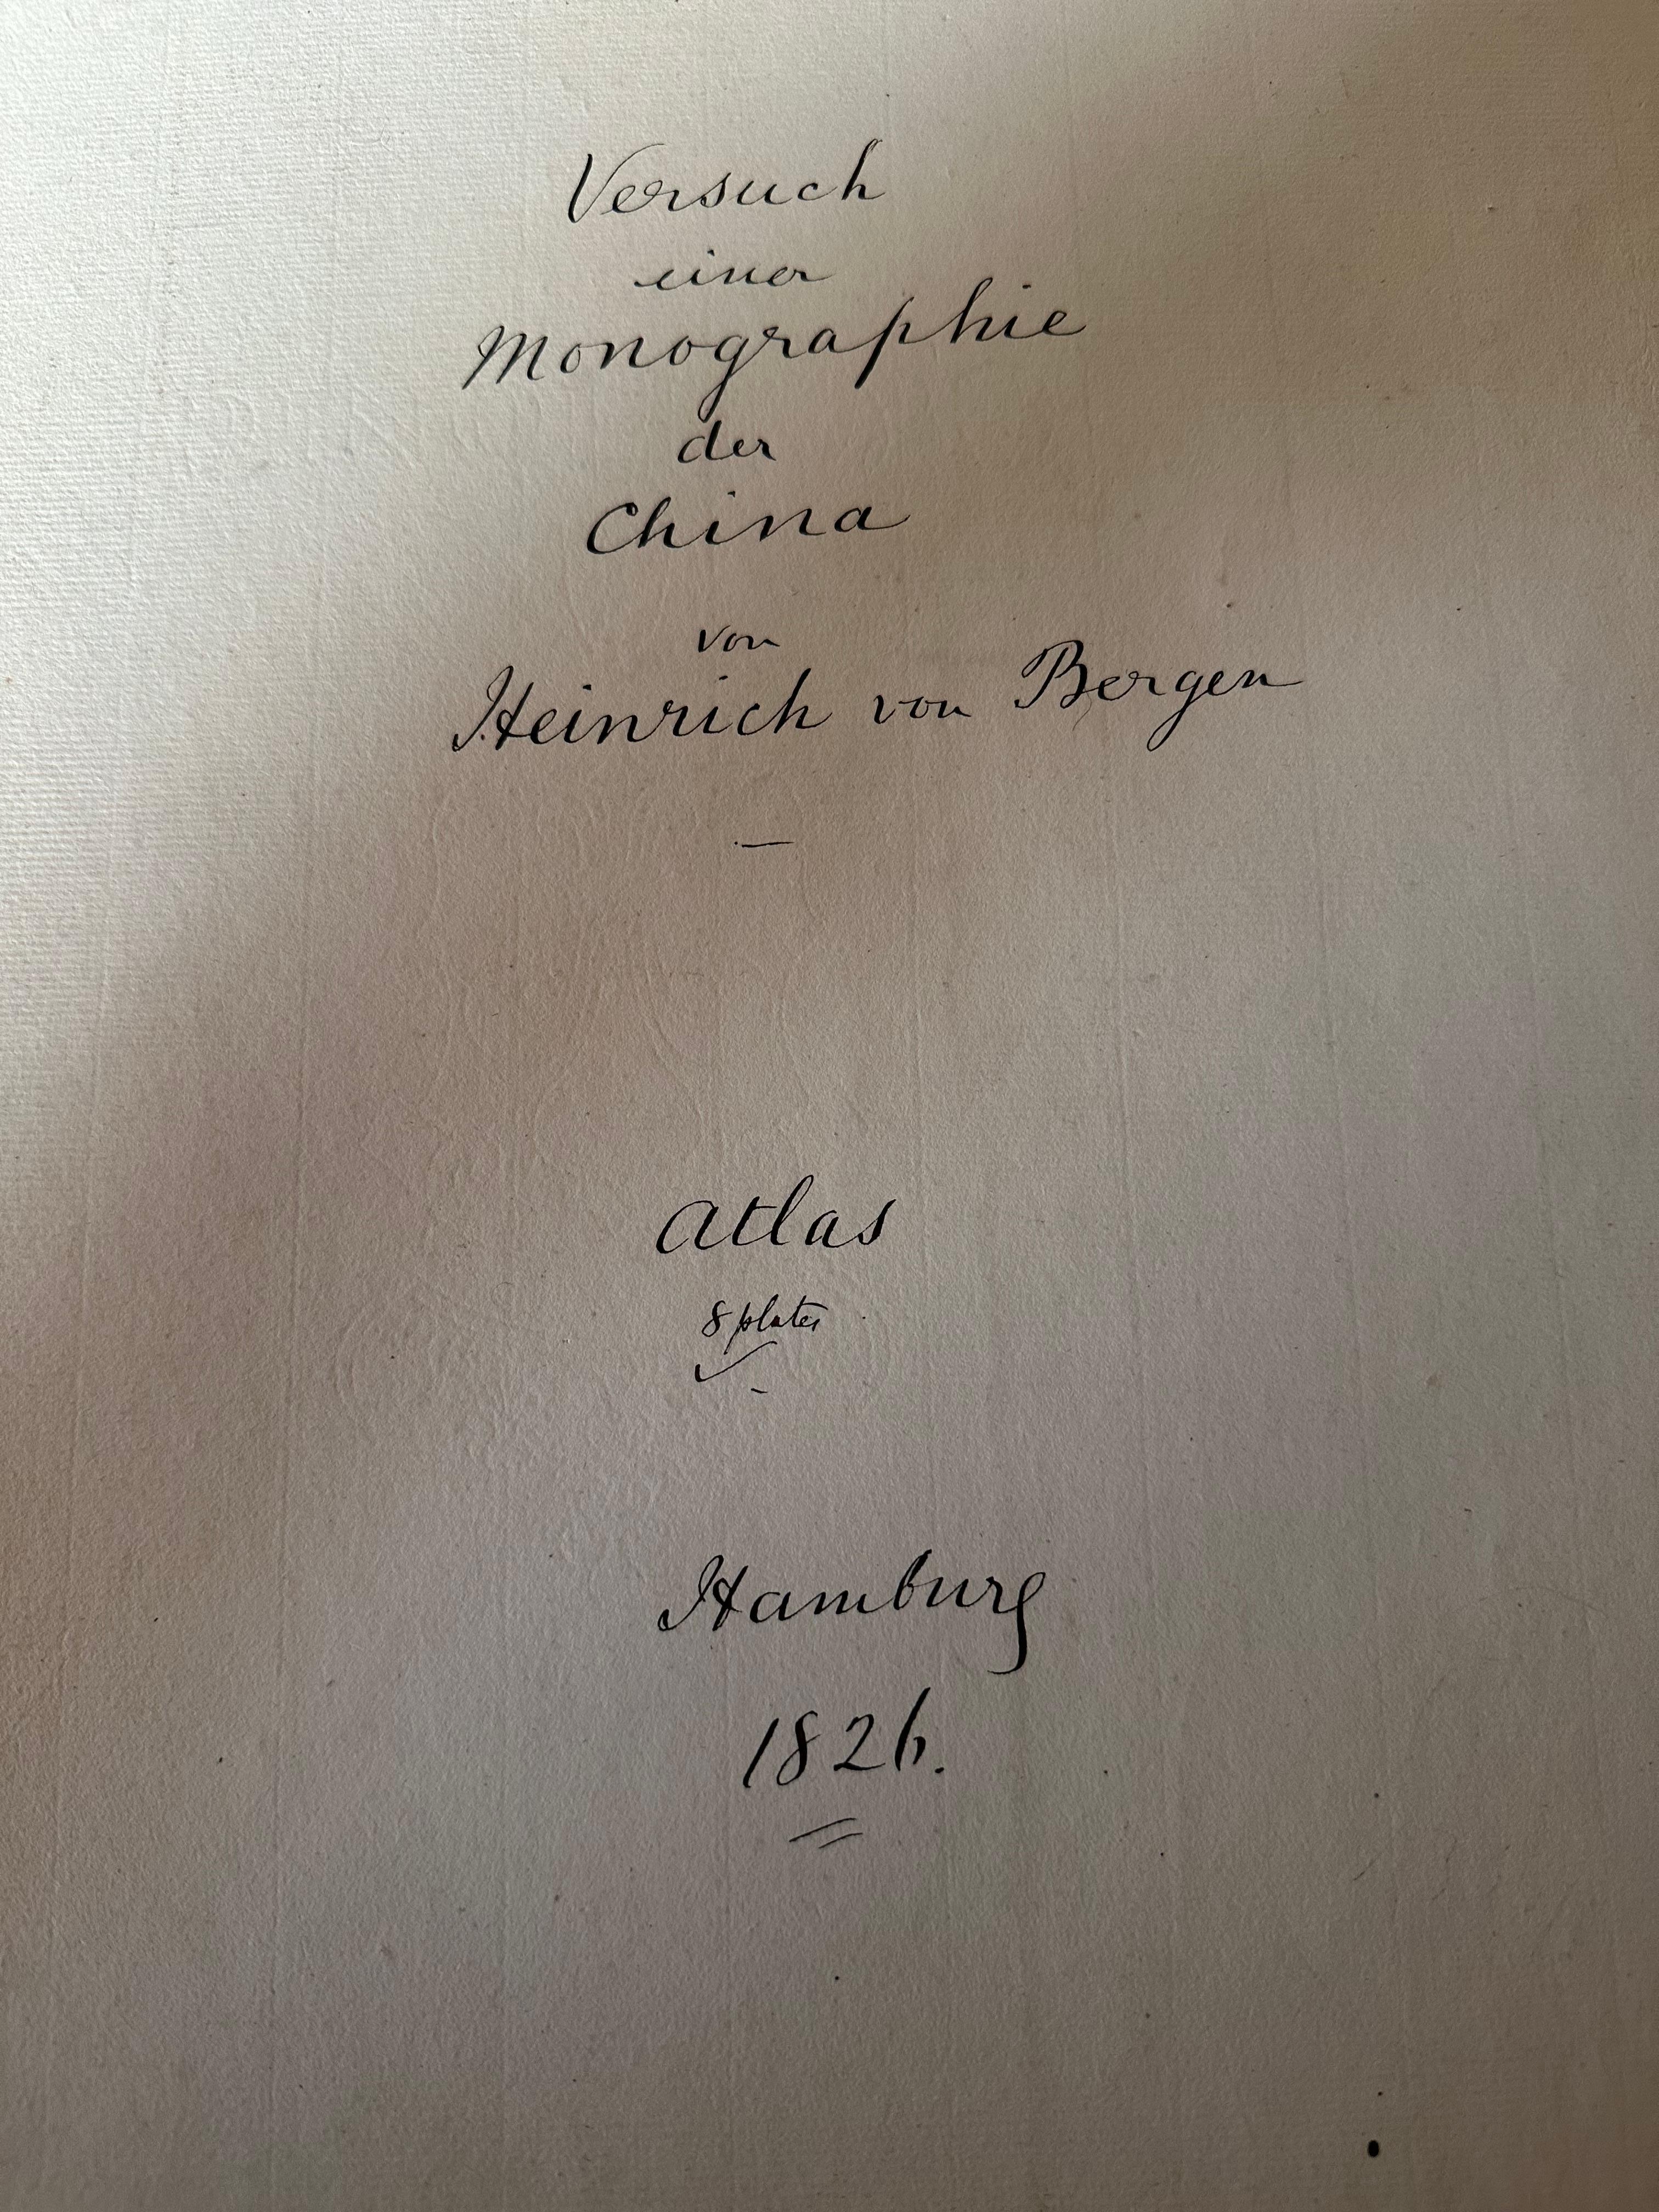 Versuch
einer
Monographie
der
China
von
Heinrich von Bergen
—
Atlas
8 plates
Hamburg
1826.